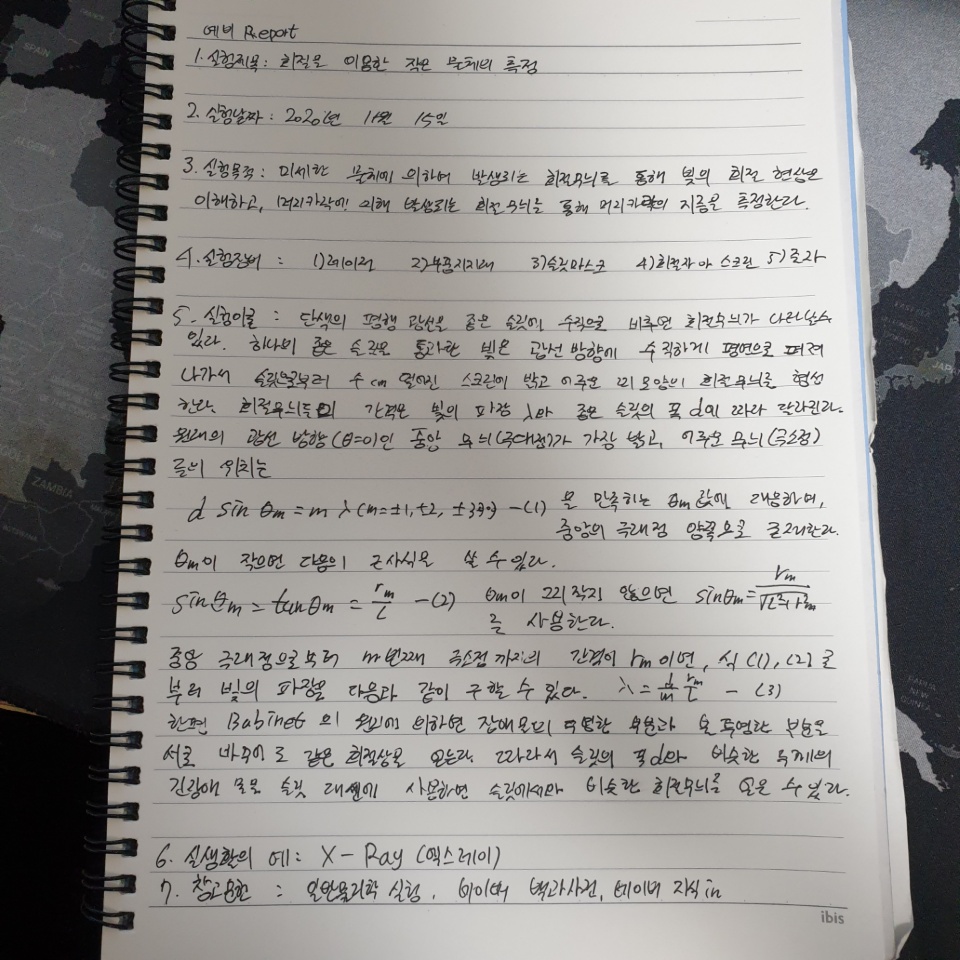 예비 Report
1. 실험제목: 회절을 이용한 작은 물체의 측정
2. 실험날짜: 2020년 11월 15일
3. 실험목적: 미세한 물체에 의하여 발생되는 회절무늬를 통해 빛의 회절 현상을
이해하고, 머리카락에 의해 발생되는 회절무늬를 통해 머리카락의 지름을 측정한다.
4. 실험장비 : 1)레이저 2)부품지지대 3)슬릿마스크 4)회절자와 스크린 5)줄자
5. 실험이론 : 단색의 평행 광선을 좁은 슬릿에 수직으로 비추면 회절무늬가 나타날수
있다. 하나의 좁은 슬릿을 통과한 빛은 광선 방향에 수직하게 평면으로 퍼져
나가서 슬릿으로부터 수 cm 떨어진 스크린에 밝고 어두운 띠 모양의 회절무늬를 형성
한다. 회절무늬들의 간격은 빛의 파장 λ와 좁은 슬릿의 폭 d에 따라 달라진다.
원래의 광선 방향(θ=0)인 중앙 무늬(극대점)가 가장 밝고, 어두운 무늬(극소점)
들의 위치는
d sin θm = m λ (m=±1, ±2, ±3, …) -(1) 을 만족하는 θm값에 대응하며,
중앙의 극대점 양쪽으로 존재한다.
θm이 작으면 다음의 근사식을 쓸 수 있다.
sinθm ≃ tanθm = rm/L -(2) θm이 그리 작지 않으면 sinθm = rm/√(L²+r²m)
를 사용한다.
중앙 극대점으로부터 m번째 극소점 까지의 간격이 rm이면, 식 (1), (2)로
부터 빛의 파장을 다음과 같이 구할 수 있다. λ = d/m rm/L - (3)
한편 Babinet의 원리에 의하면 장애물의 투명한 부분과 불투명한 부분을
서로 바꾸어도 같은 회절상을 얻는다. 따라서 슬릿의 폭 d와 비슷한 두께의
긴 장애물을 슬릿 대신에 사용하면 슬릿에서와 비슷한 회절무늬를 얻을 수 있다.
6. 실생활의 예: X-Ray (엑스레이)
7. 참고문헌 : 일반물리학 실험, 네이버 백과사전, 네이버 지식in
ibis